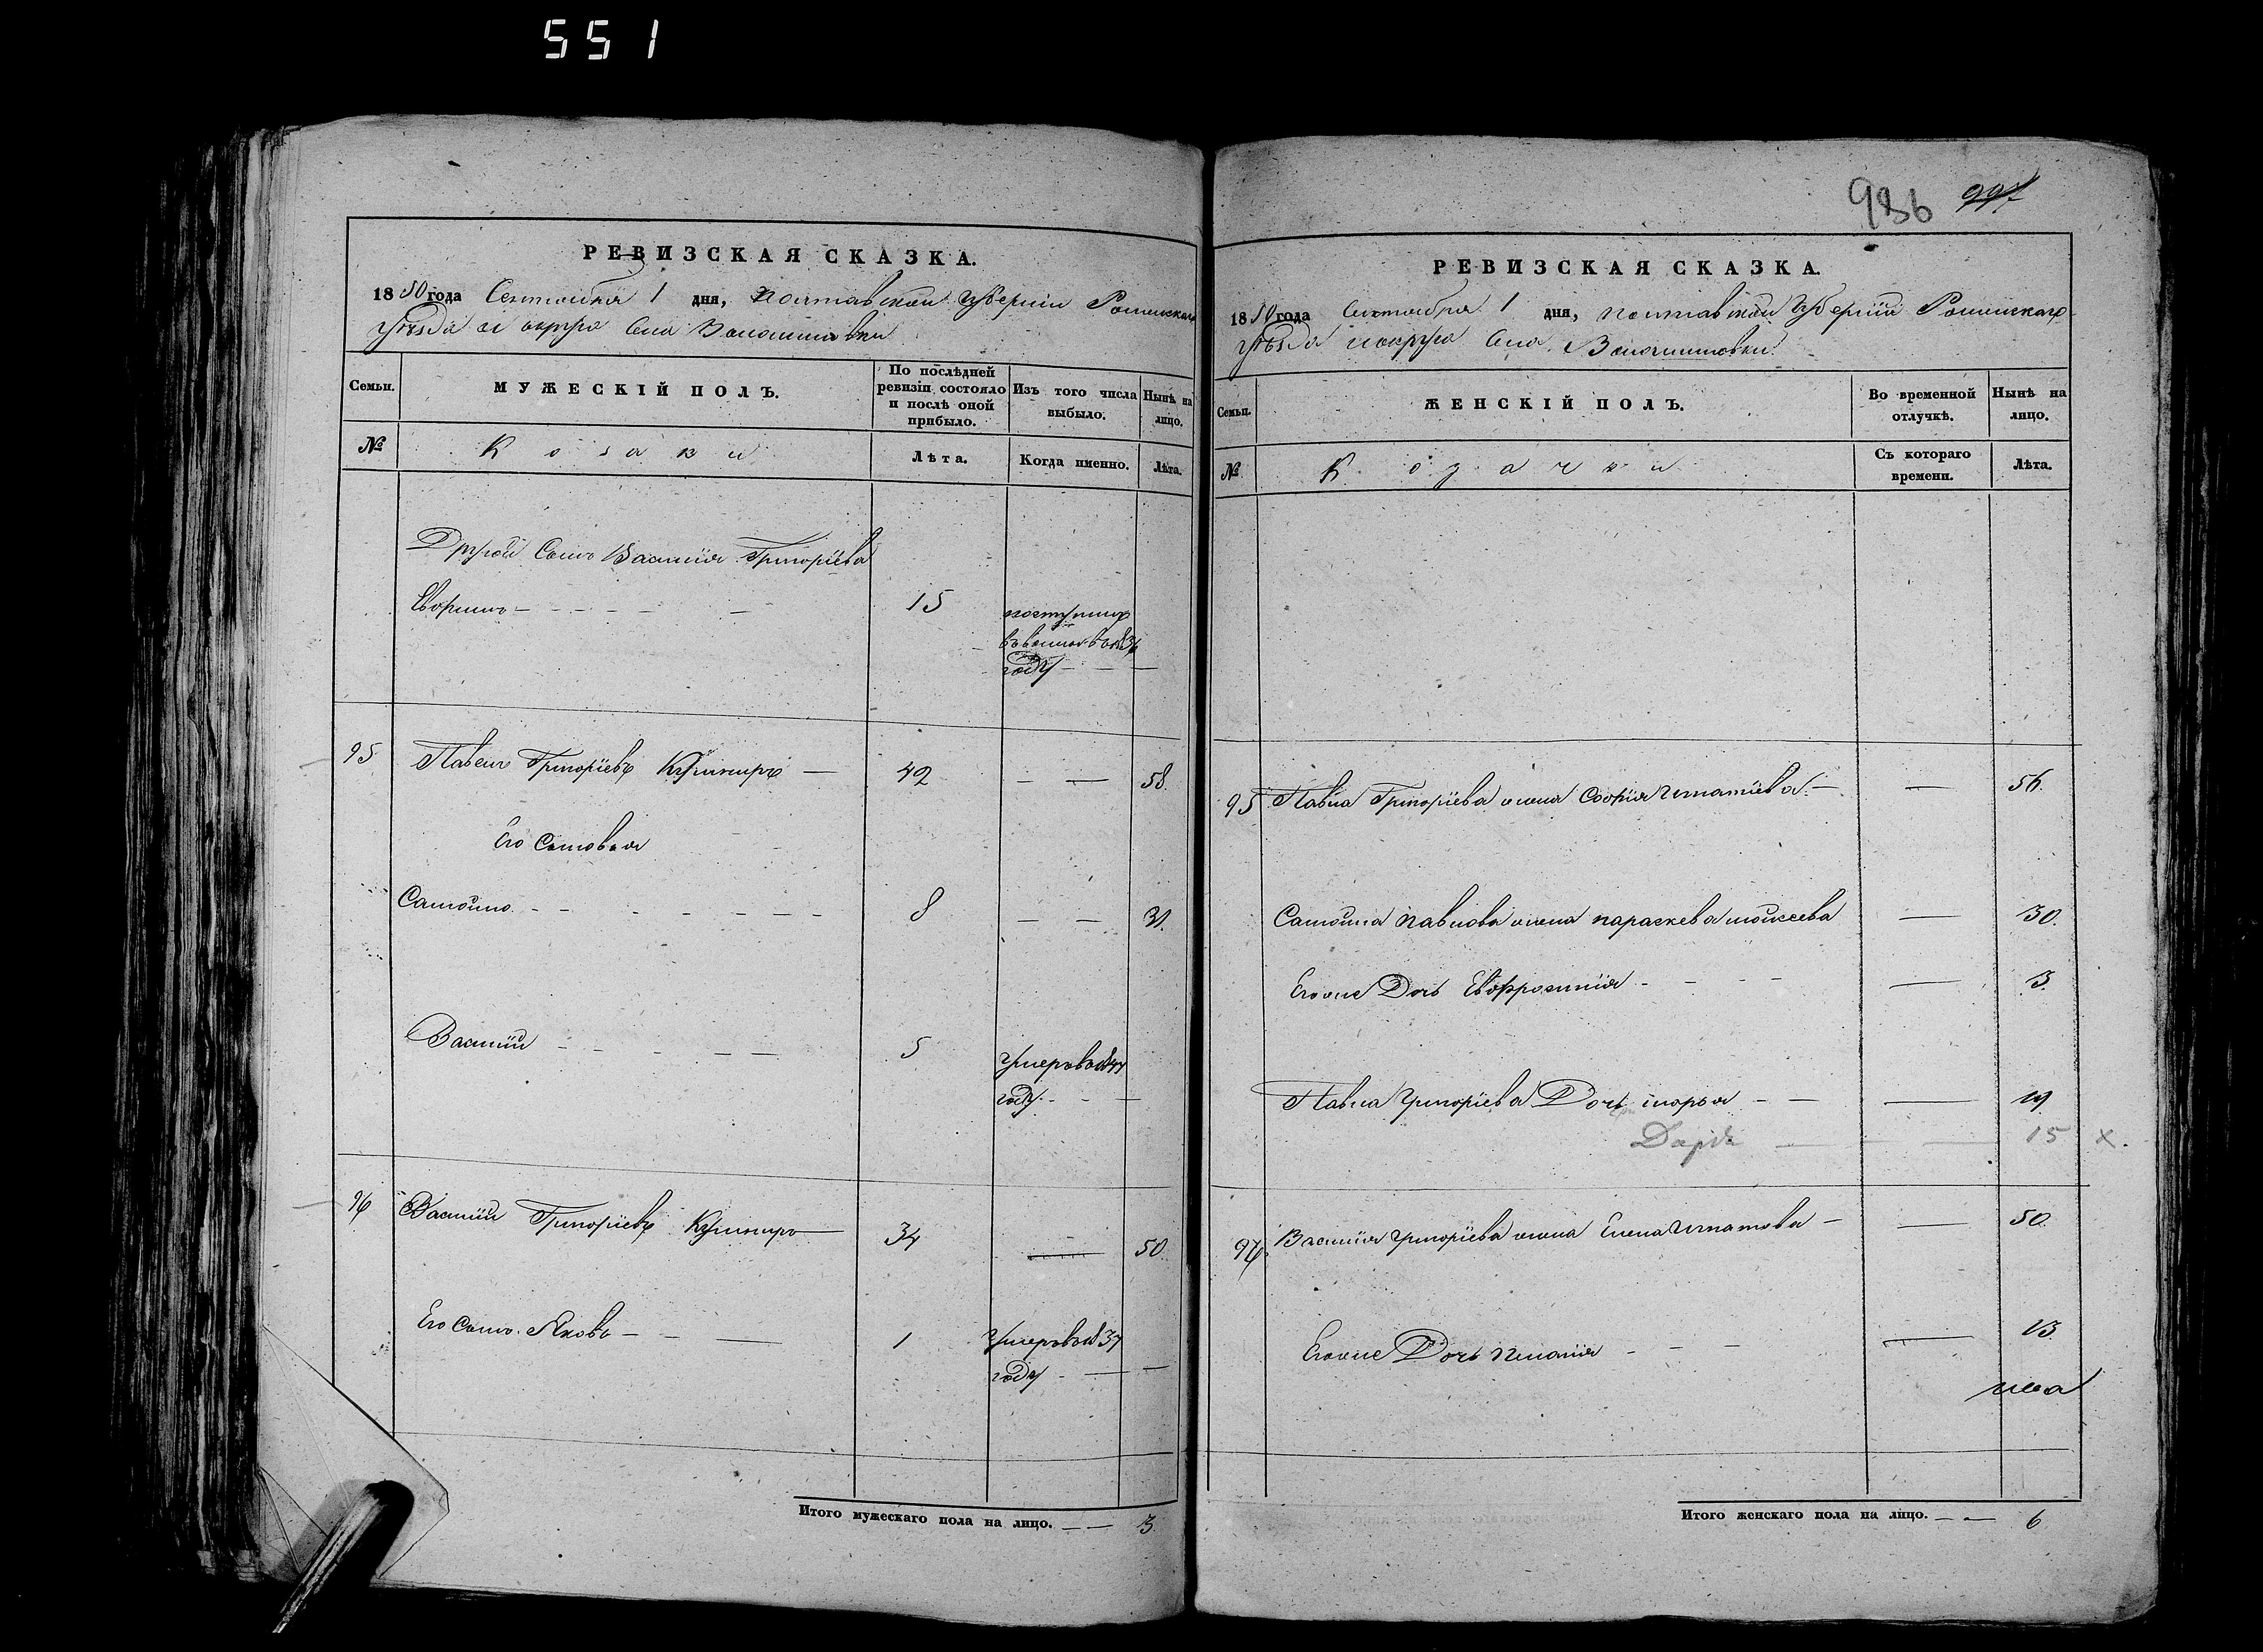 551
РЕВИЗСКАЯ СКАЗКА.
1850 года Сентября 1 дня, Полтавской Губерніи Роменскаго
уѣзда и округа Села Волошиновки
Семьи. МУЖЕСКІЙ ПОЛЪ. По послѣдней ревизіи состояло и послѣ оной прибыло. Изъ того числа выбыло. Нынѣ на лицо.
№ Козаки Лѣта. Когда именно. Лѣта.
Другой Сынъ Василія Григоріева
15 поступилъ
въ 1836
году
95 Павелъ Григоріевъ Кушниръ 42 58.
Его Сыновья
Самойло 8
Василій 5 умеръ в 1844
году
96 Василій Григоріевъ Кушниръ 34 50.
Его Сынъ Яковъ 1 Умеръ в 1837
году
Итого мужескаго пола на лицо. 3
986 997
РЕВИЗСКАЯ СКАЗКА.
1850 года Сентября 1 дня, Полтавской Губерніи Роменскаго
уѣзда и округа Села Волошиновки.
Семьи. ЖЕНСКІЙ ПОЛЪ. Во временной отлучкѣ. Нынѣ на лицо.
№ Козачки Съ котораго времени. Лѣта.
95 Павла Григоріева жена Софія Игнатіева 56.
Самойла Павлова жена Параскева Мойсеева 30.
Его же Дочь Евфросинія 3.
Павла Григоріева Дочь Марья 19
Дарья 15 х.
96 Василія Григоріева жена Елена Игнатова 50.
Его же Дочь 13.
Итого женскаго пола на лицо. 6